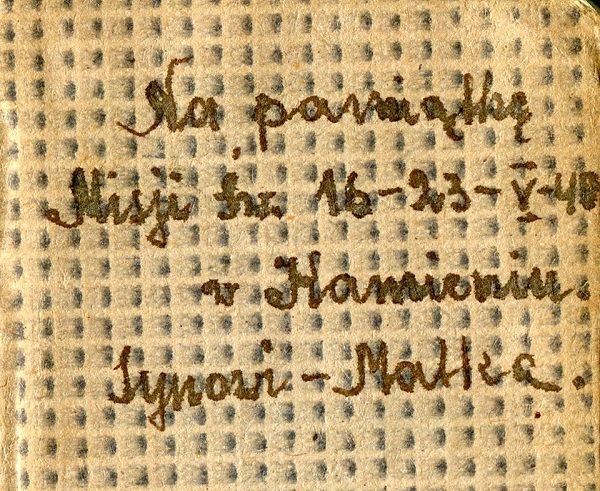 Na pamiątkę
Misji św. 16-23-V-48
w Kamieniu.
Synowi - Matka.